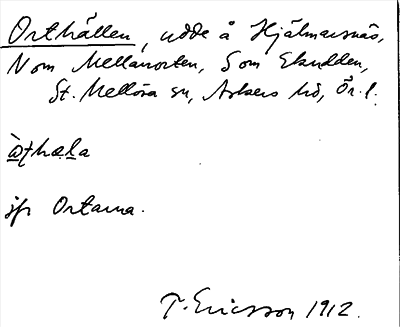 Orthällen, udde å Hjälmarsnäs,
N om Mellanorten, S om Ekudden,
St. Mellösa sn, Askers hd, Ör. l.
jfr Ortarna.
T. Ericsson 1912.